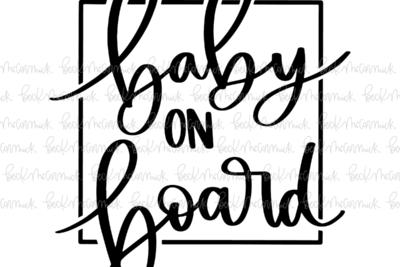 baby
ON
board